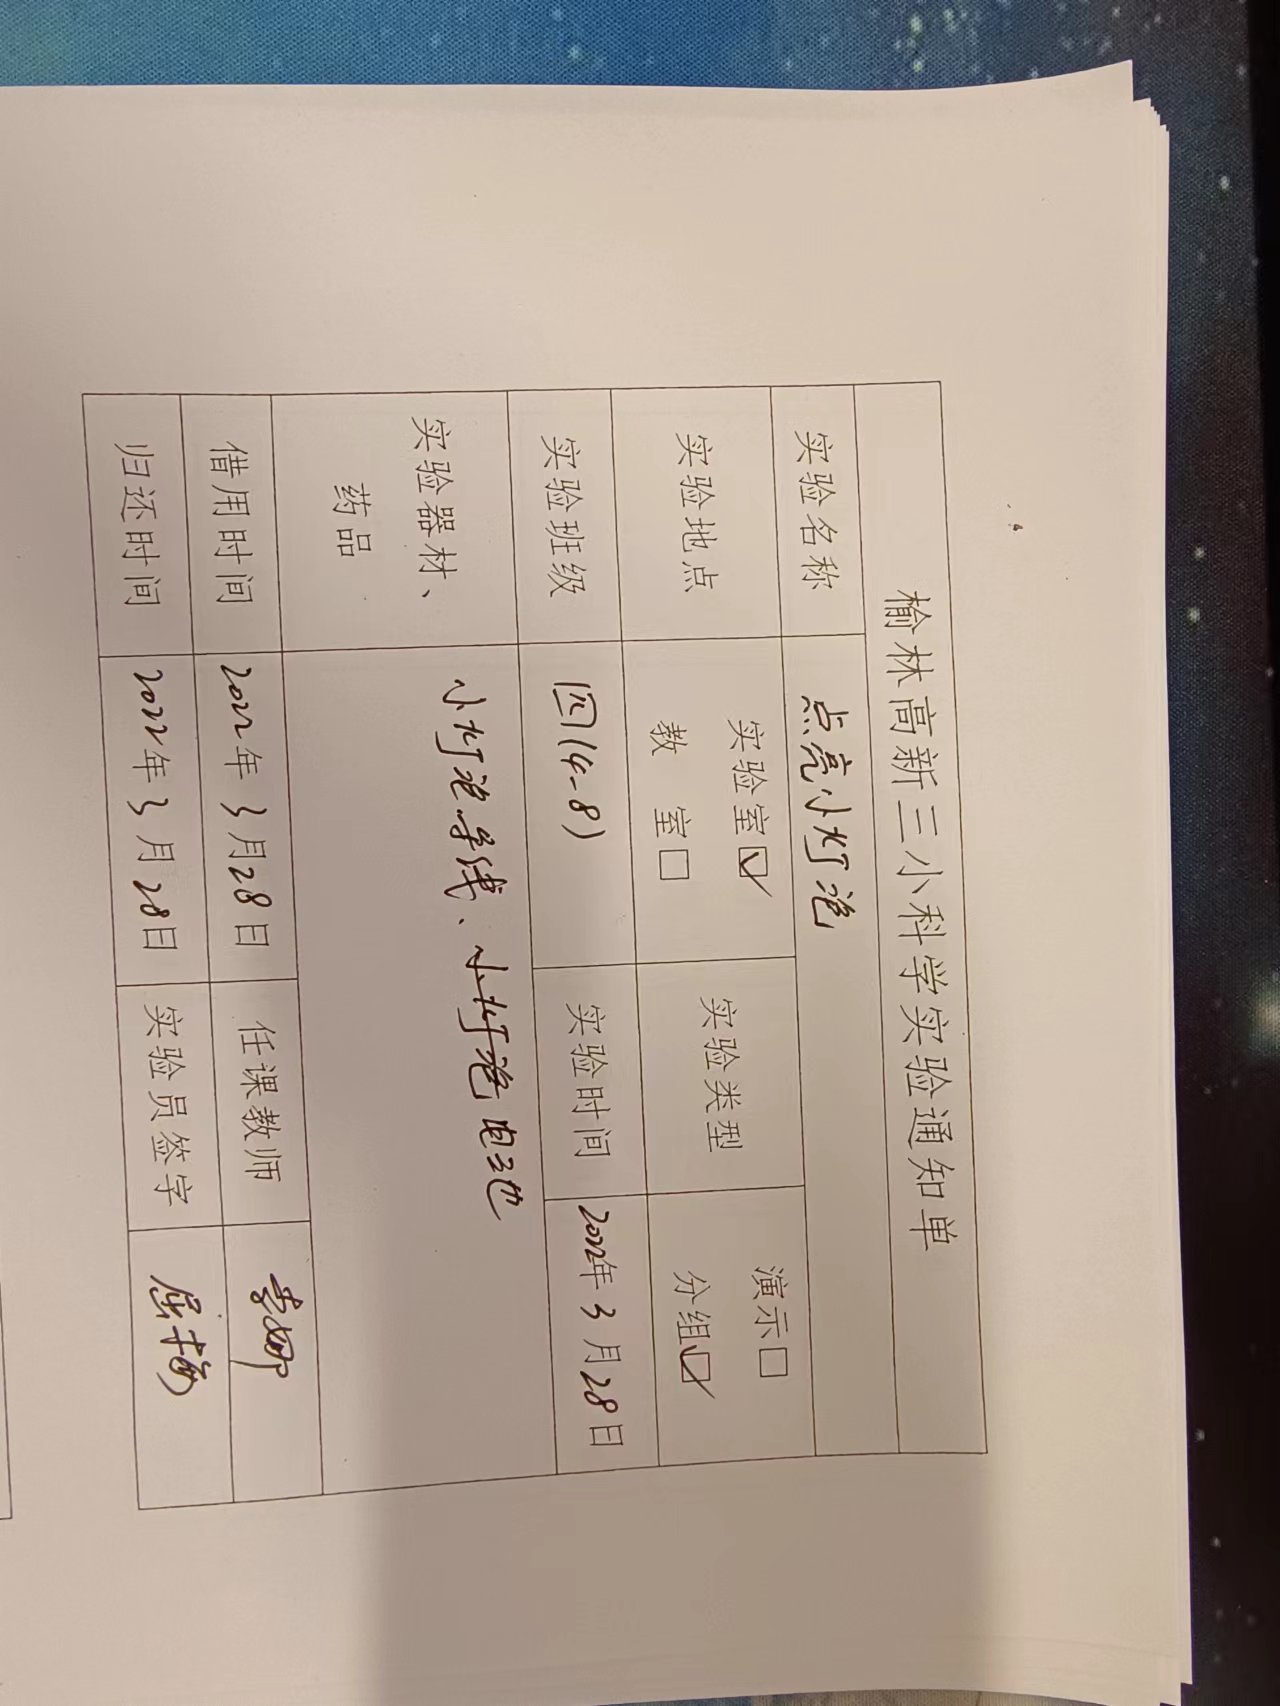 榆林高新三小科学实验通知单
实验名称 点亮小灯泡
实验地点 实验室☑ 教 室□ 实验类型 演示□ 分组☑
实验班级 四(4-8) 实验时间 2022年3月28日
实验器材、药品 小灯泡导线、小灯泡 电池
借用时间 2022年3月28日 任课教师 李娜
归还时间 2022年3月28日 实验员签字